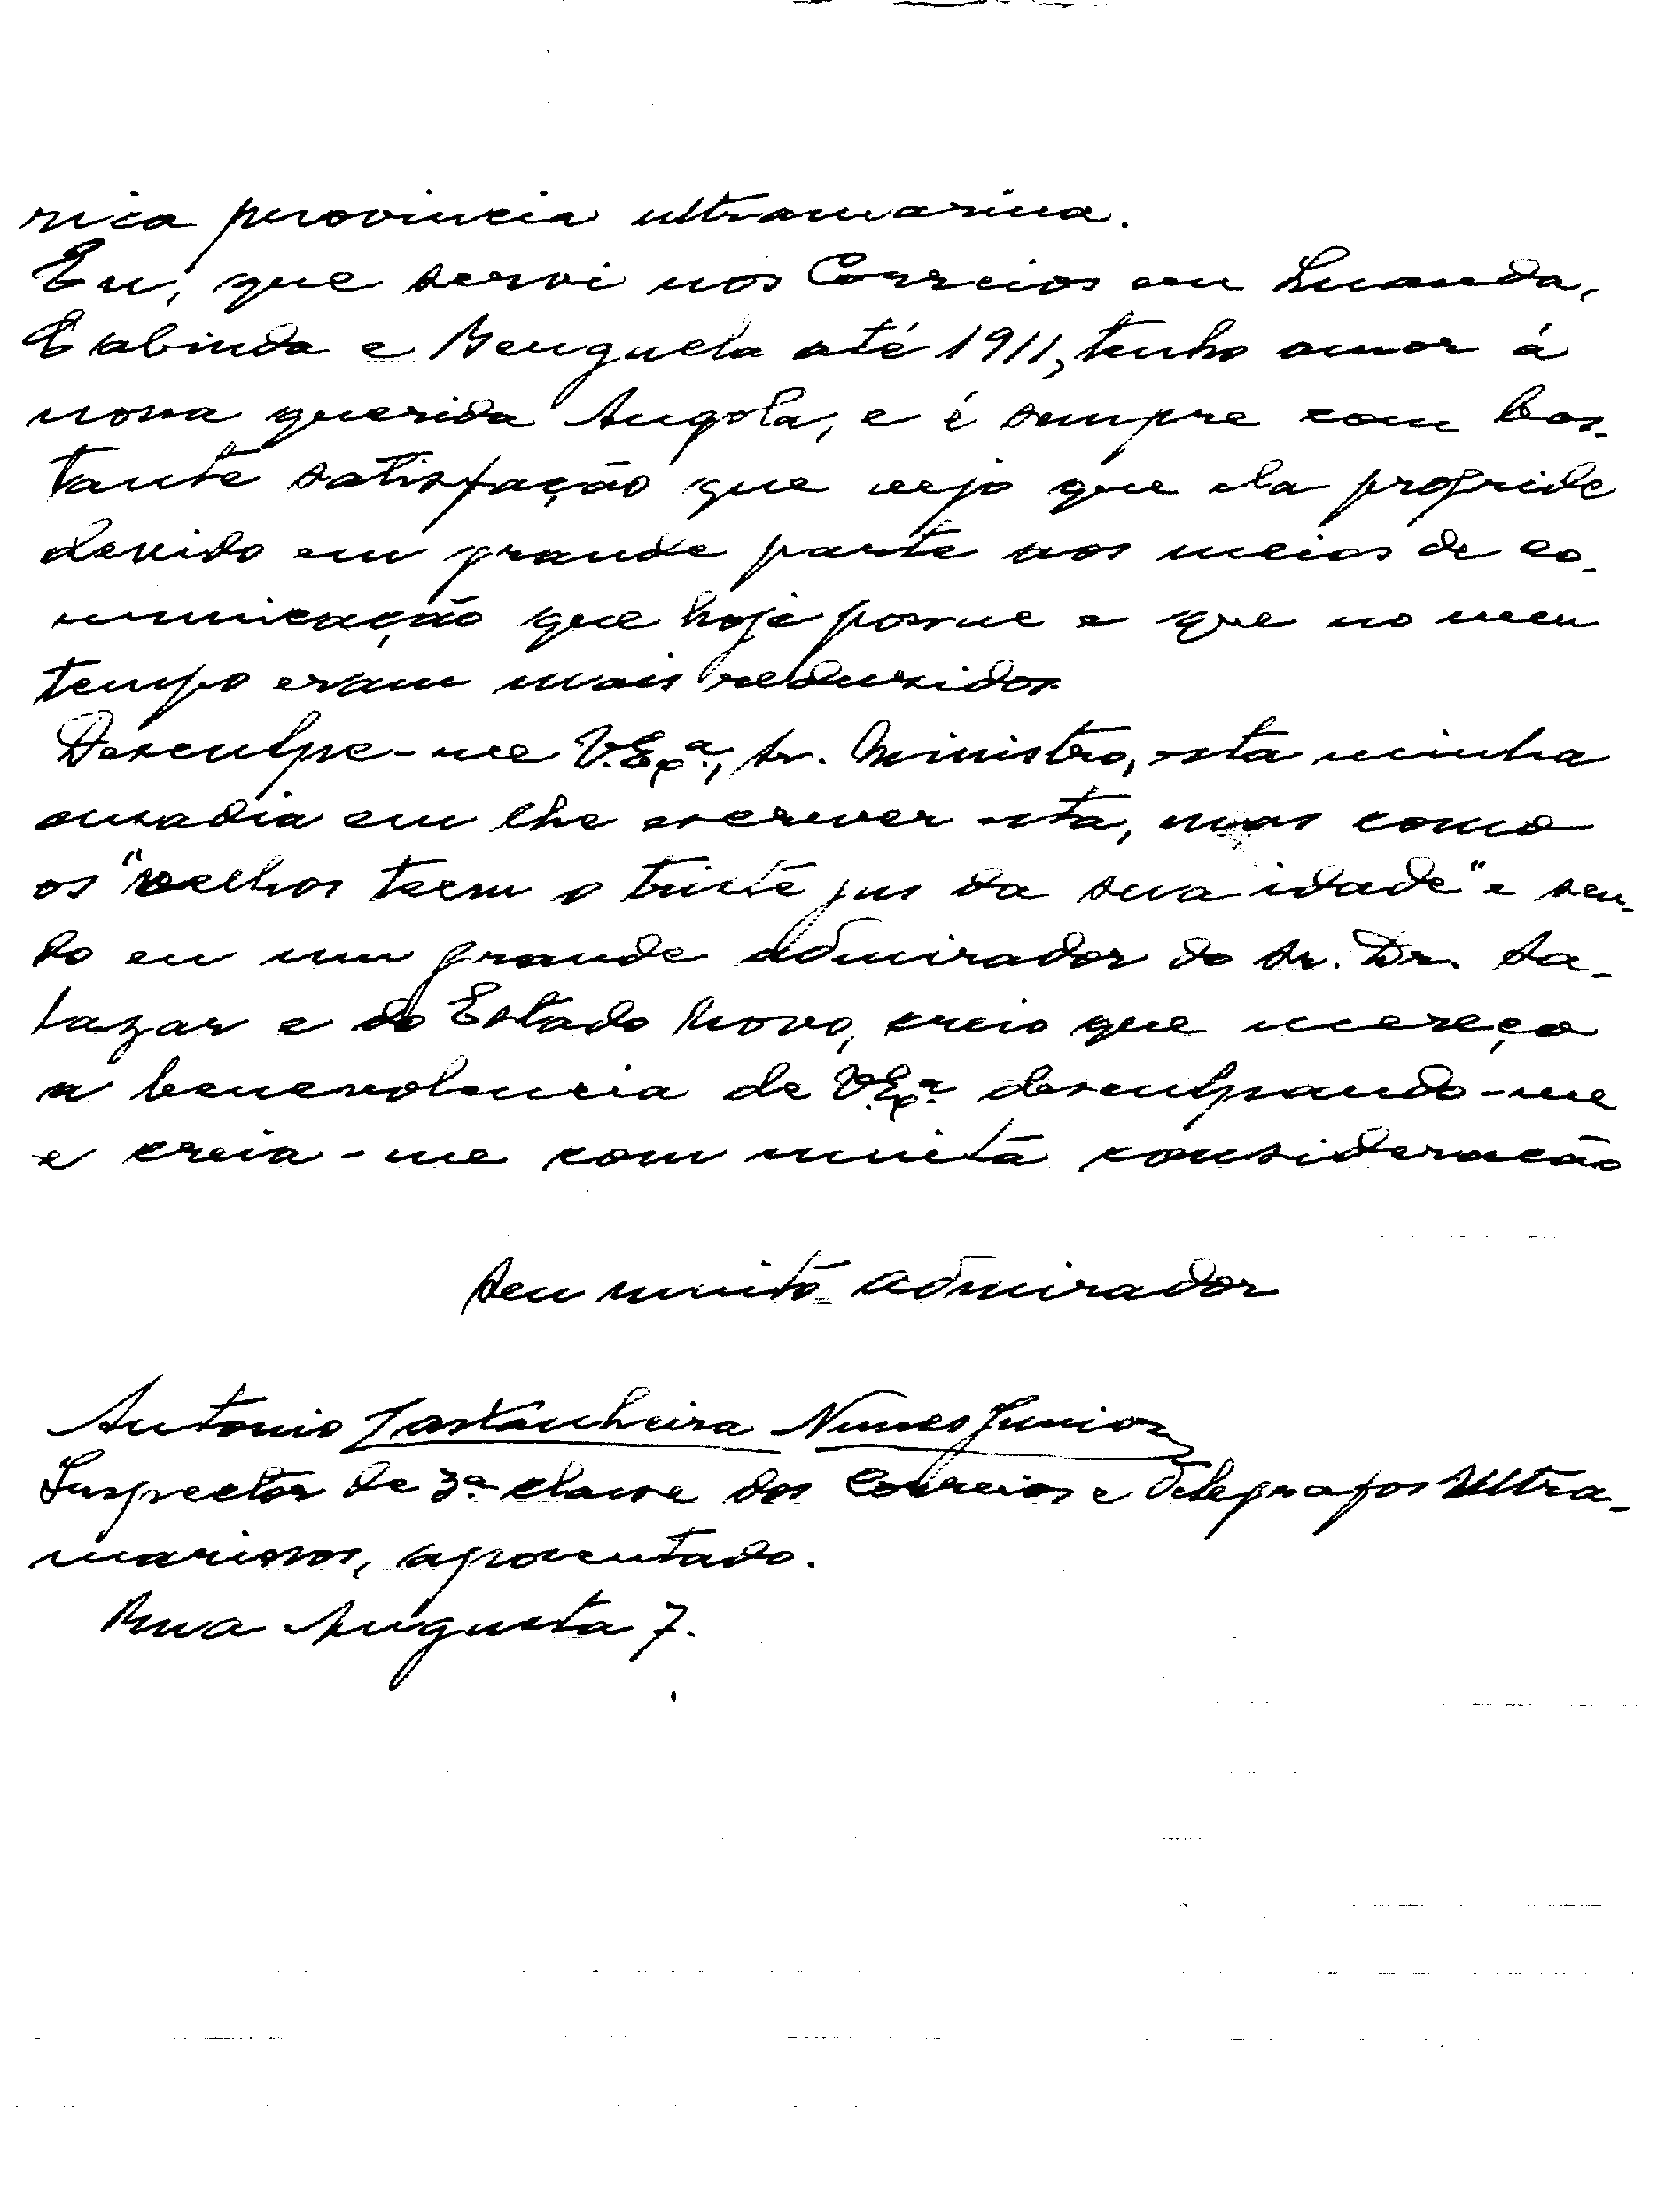 rica provincia ultramarina.
Eu, que servi nos Correios em Luanda,
Cabinda e Benguela até 1911, tenho amor á
nossa querida Angola, e é sempre com bas-
tante satisfação que vejo que ela progride
devido em grande parte aos meios de co-
municação que hoje possue e que no meu
tempo eram mais redusidos
Desculpe-me V.Exª., Sr. Ministro, esta minha
ousadia em lhe escrever esta, mas como
os "velhos teem o triste jus da sua idade" e sen-
do eu um grande admirador do Sr. Dr. Sa-
lazar e do Estado Novo, creio que mereço
a benevolencia de V.Exª. desculpando-me
e creia-me com muita consideração
Seu muitº admirador
Antonio Castanheira Nunes Junior
Inspector de 3ª classe dos Correios e Telegrafos Ultra-
marinos, aposentado.
Rua Augusta 7.